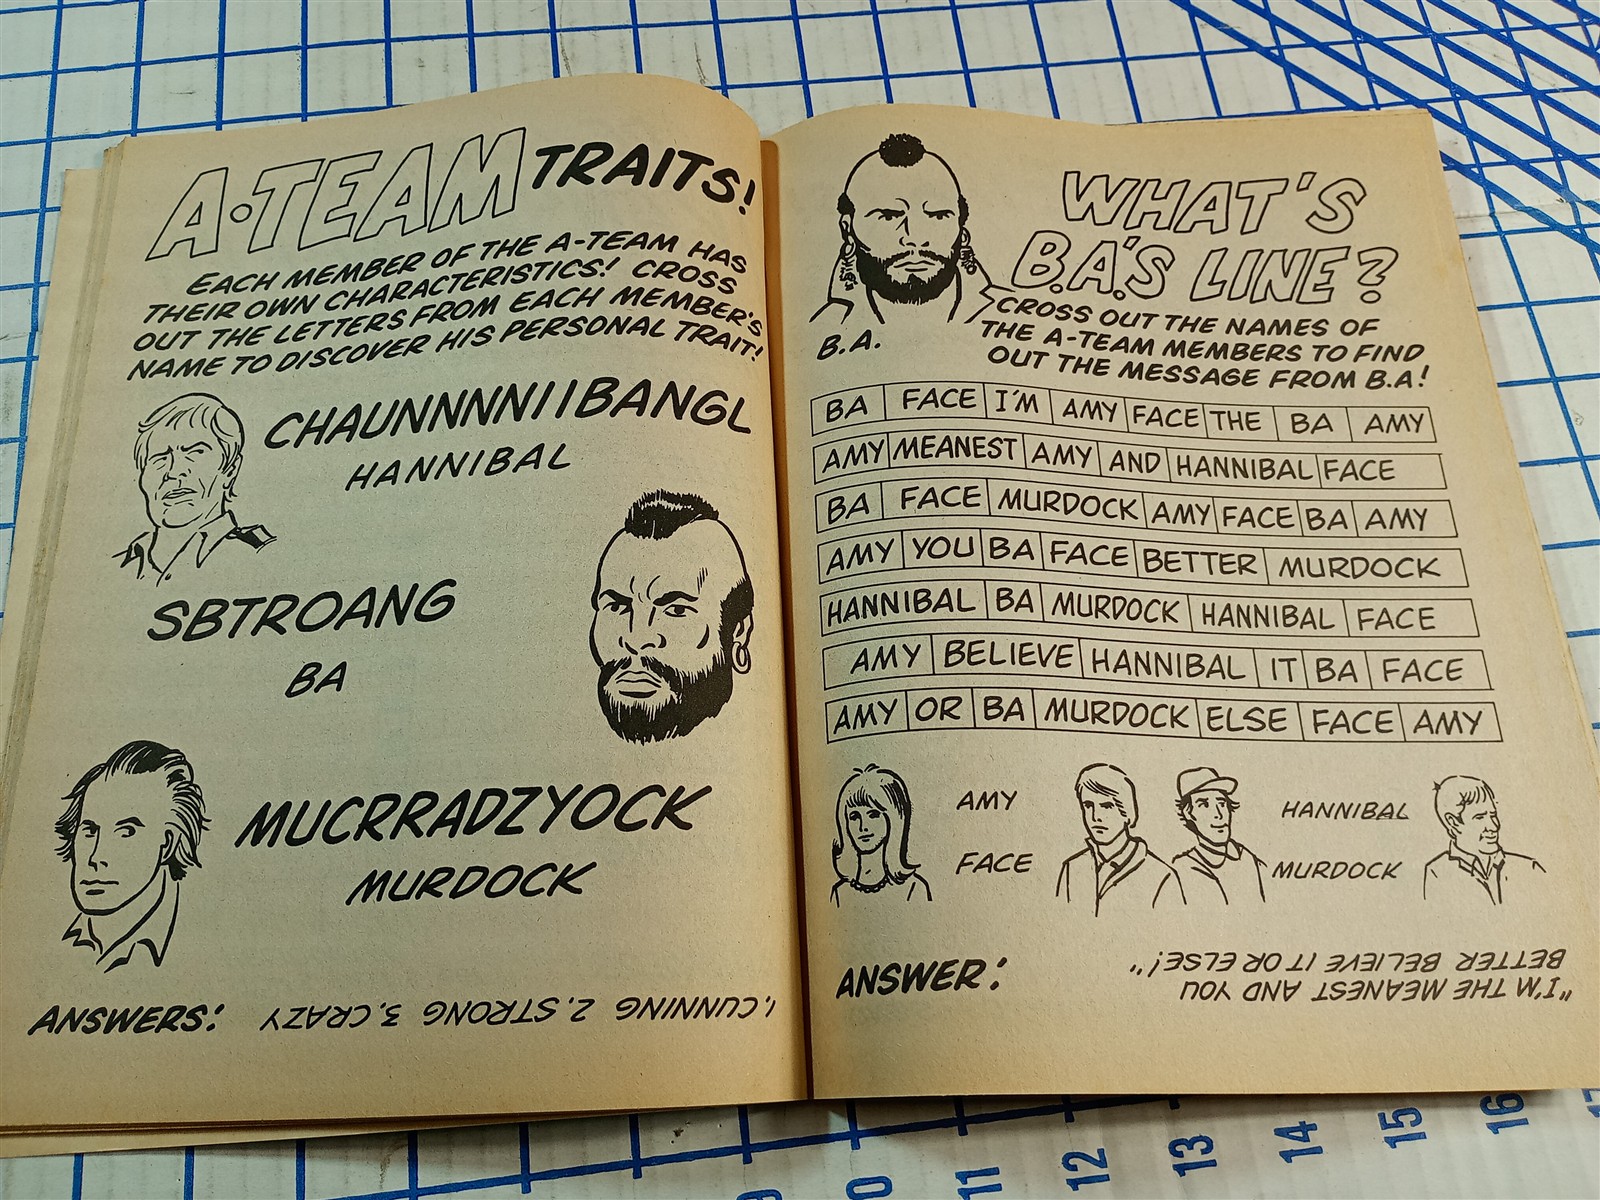 A·TEAM TRAITS!
EACH MEMBER OF THE A-TEAM HAS
THEIR OWN CHARACTERISTICS! CROSS
OUT THE LETTERS FROM EACH MEMBER'S
NAME TO DISCOVER HIS PERSONAL TRAIT!
CHAUNNNNIIBANGL
HANNIBAL
SBTROANG
BA
MUCRRADZYOCK
MURDOCK
ANSWERS: 1. CUNNING 2. STRONG 3. CRAZY
WHAT'S
B.A.'S LINE?
B.A.
CROSS OUT THE NAMES OF
THE A-TEAM MEMBERS TO FIND
OUT THE MESSAGE FROM B.A!
BA FACE I'M AMY FACE THE BA AMY
AMY MEANEST AMY AND HANNIBAL FACE
BA FACE MURDOCK AMY FACE BA AMY
AMY YOU BA FACE BETTER MURDOCK
HANNIBAL BA MURDOCK HANNIBAL FACE
AMY BELIEVE HANNIBAL IT BA FACE
AMY OR BA MURDOCK ELSE FACE AMY
AMY HANNIBAL
FACE MURDOCK
ANSWER:
"I'M THE MEANEST AND YOU
BETTER BELIEVE IT OR ELSE!"
9 10 11 12 13 14 15 16 17